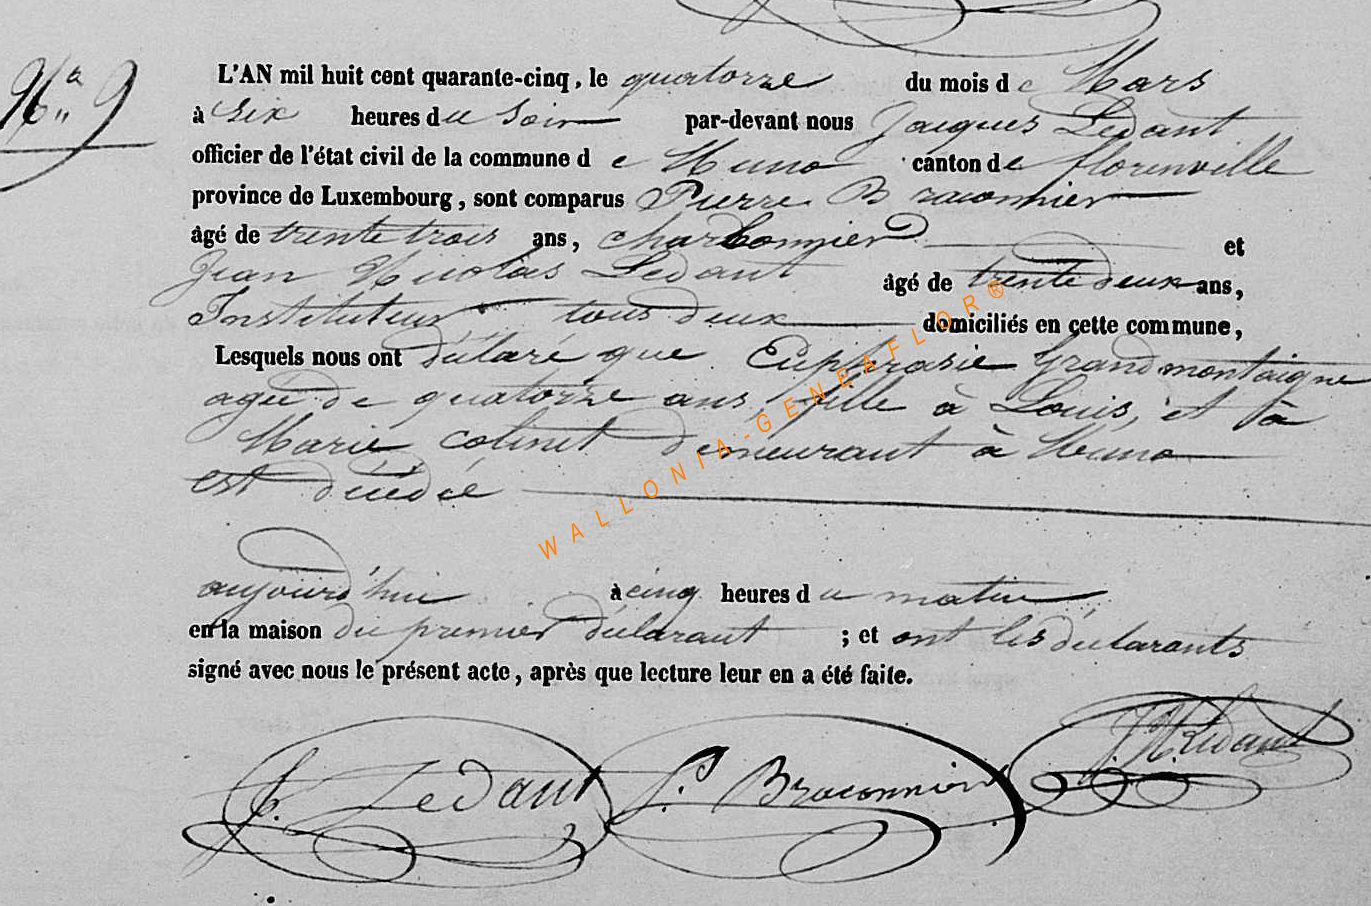 N.° 9
L'AN mil huit cent quarante-cinq, le quatorze du mois de Mars
à Six heures du Soir par-devant nous Jacques Ledant
officier de l'état civil de la commune de Muno canton de florenville
province de Luxembourg, sont comparus Pierre Braconnier
âgé de trente trois ans, charbonnier et
Jean Nicolas Ledant âgé de trente deux ans,
Instituteur tous deux domiciliés en cette commune,
Lesquels nous ont déclaré que Euphrasie Grandmontaigne
agée de quatorze ans, fille à Louis, et à
Marie Colinet demeurant à Muno
est décédée
aujourd'hui à cinq heures du matin
en la maison du premier déclarant ; et ont les déclarants
signé avec nous le présent acte, après que lecture leur en a été faite.
J. Ledant P. Braconnier J. N. Ledant
WALLONIA-GENEAFLOR®